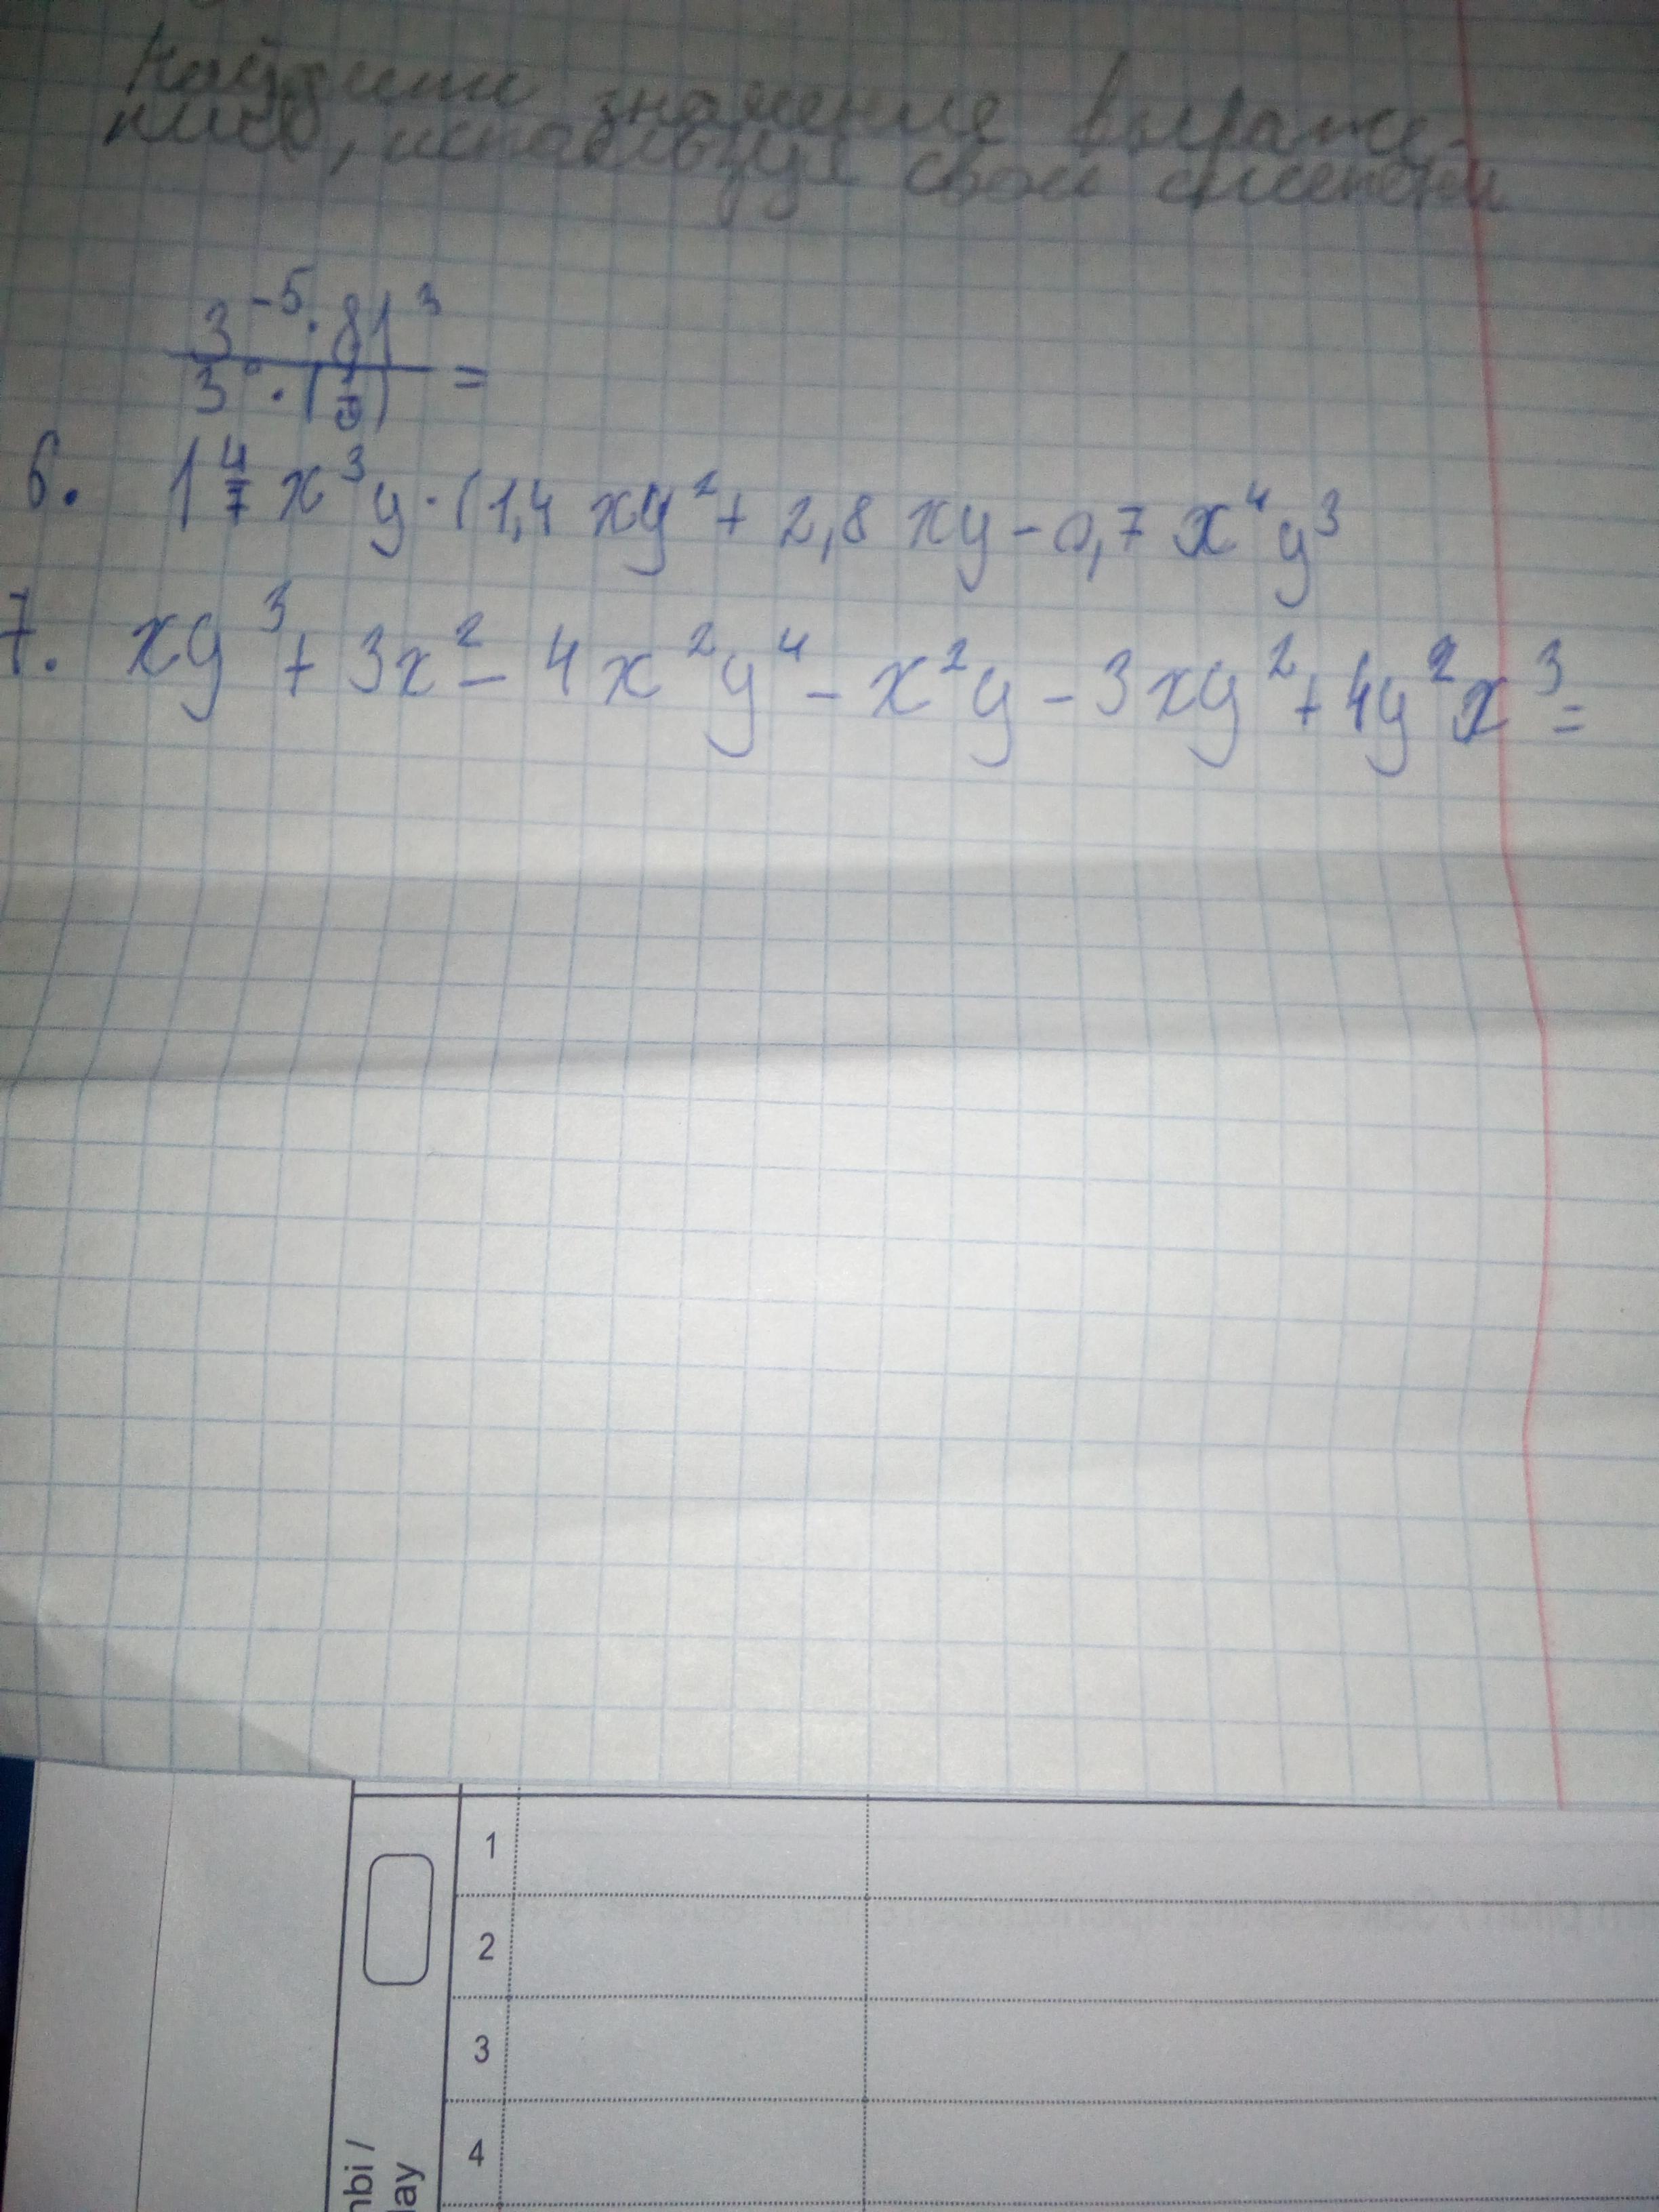 Найдите значение выраже-
ния, используя свой степени
3⁻⁵ · 81³
3° · (1/9) =
6. 1 4/7 x³y · (1,4 xy² + 2,8 xy - 0,7 x⁴y³
7. xy³ + 3x² - 4x²y⁴ - x²y - 3xy² + 4y²x³ =
1
2
3
4
nbi /
lay